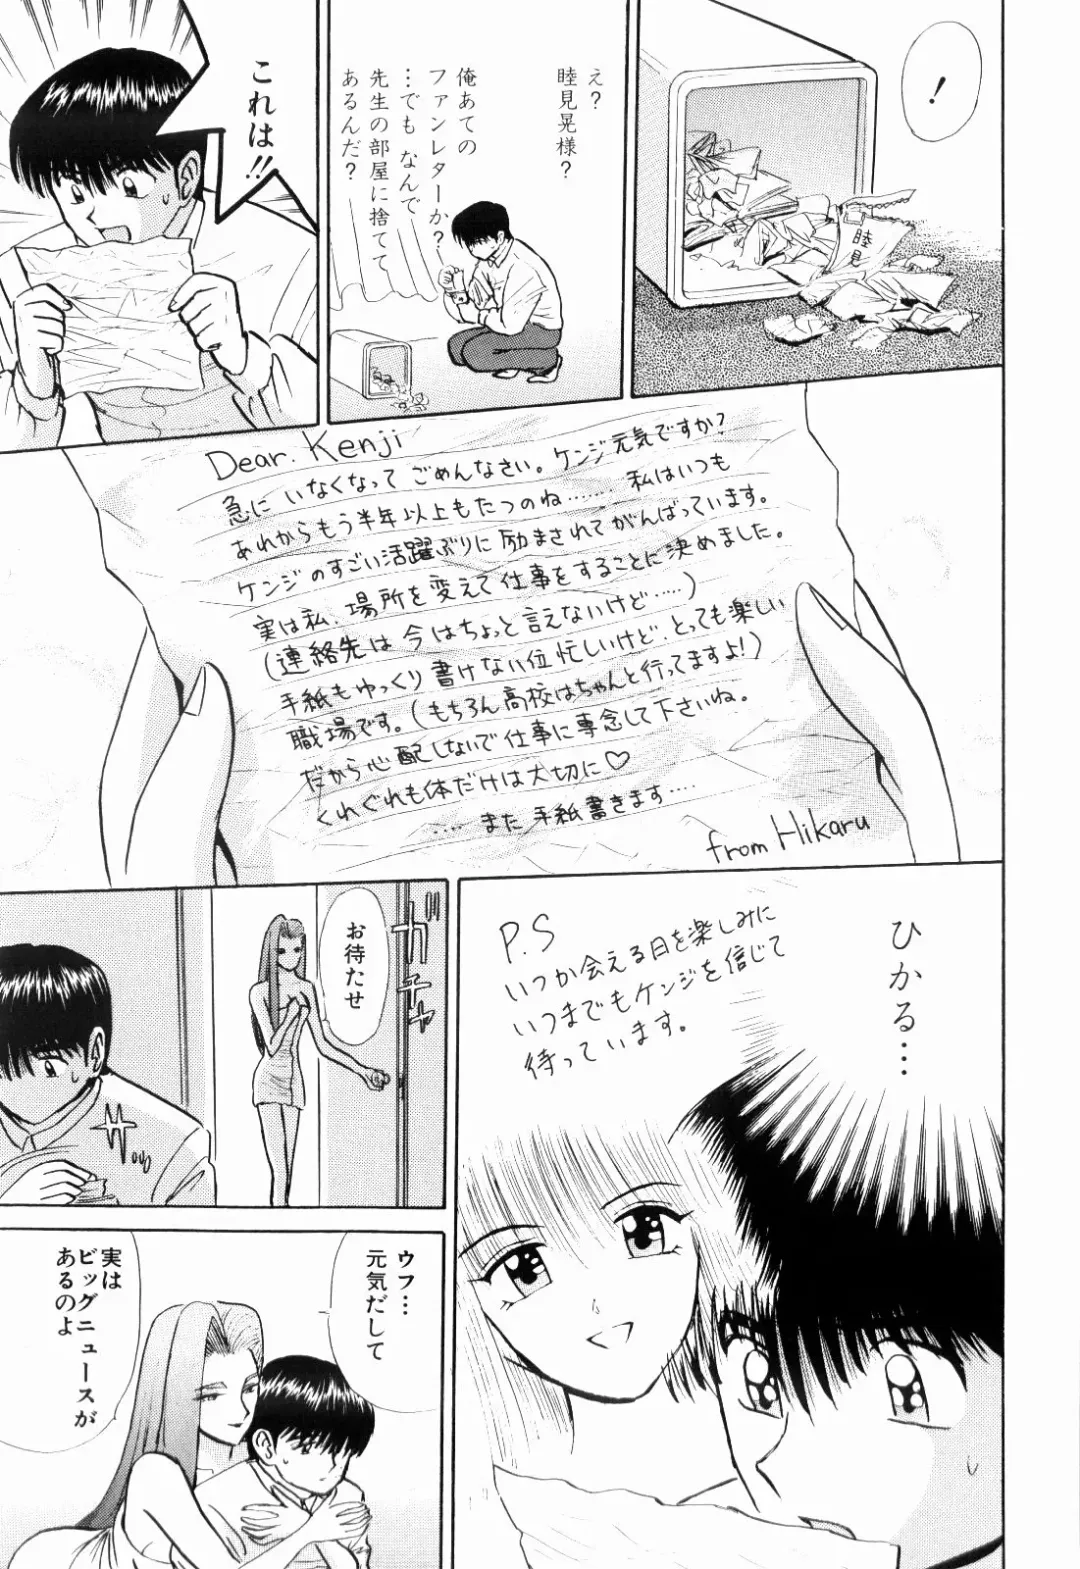 ！
睦見
え？
睦見晃様？
俺あての
ファンレターか？
…でも なんで
先生の部屋に捨てて
あるんだ？
これは!!
Dear. Kenji
急に いなくなって ごめんなさい。ケンジ元気ですか？
あれからもう半年以上もたつのね…… 私はいつも
ケンジのすごい活躍ぶりに励まされてがんばっています。
実は私、場所を変えて仕事をすることに決めました。
(連絡先は 今はちょっと言えないけど……)
手紙もゆっくり書けない位忙しいけど、とっても楽しい
職場です。(もちろん高校はちゃんと行ってますよ!)
だから心配しないで仕事に専念して下さいね。
くれぐれも体だけは大切に♡
…… また手紙書きます……
from Hikaru
P.S
いつか会える日を楽しみに
いつまでもケンジを信じて
待っています。
ひかる…
ガチャ
お待たせ
ウフ…
元気だして
実は
ビッグニュースが
あるのよ